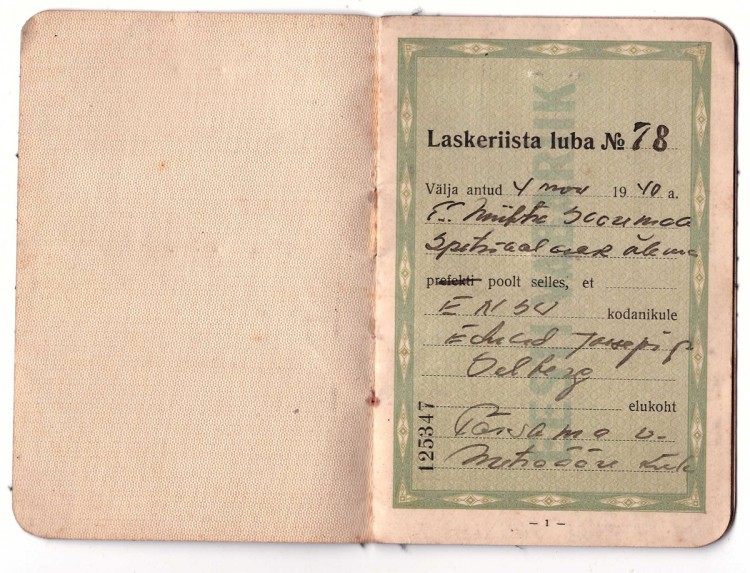 Laskeriista luba № 78
Välja antud 4 nov 1940 a.
Saaremaa
prefekti poolt selles, et
ENSV kodanikule
Eduard
Selberg
elukoht
Pärsama v.
Metsaääre
125347
EESTI VABARIIK
— 1 —